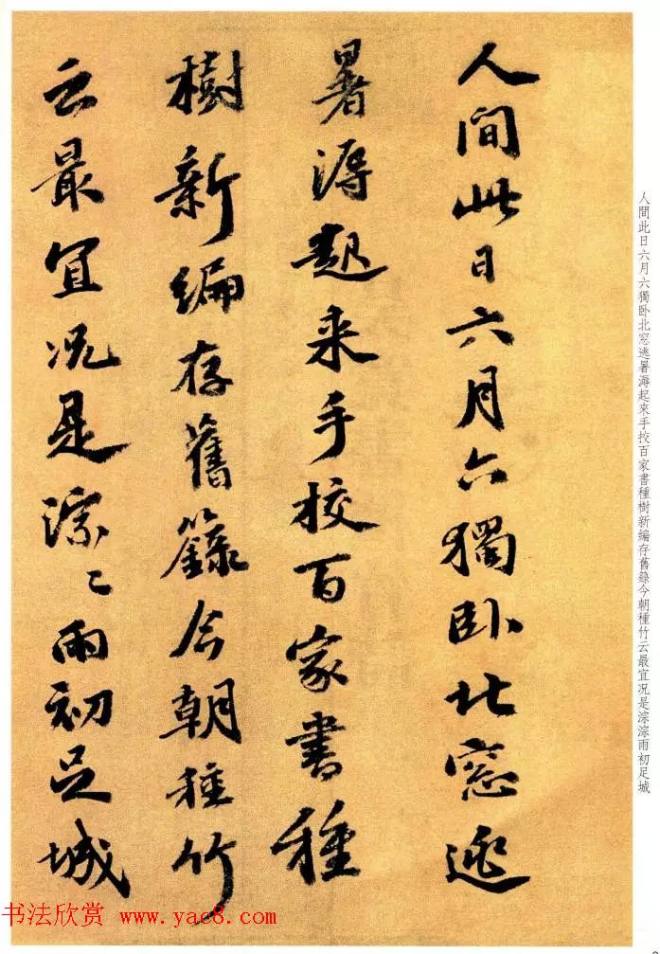 人間此日六月六獨卧北窓逃
暑溽起来手校百家書種
樹新編存舊錄今朝種竹
云最宜况是淙〻雨初足城
人間此日六月六獨卧北窓逃暑溽起來手校百家書種樹新編存舊錄今朝種竹云最宜况是淙淙雨初足城
书法欣赏 www.yac8.com